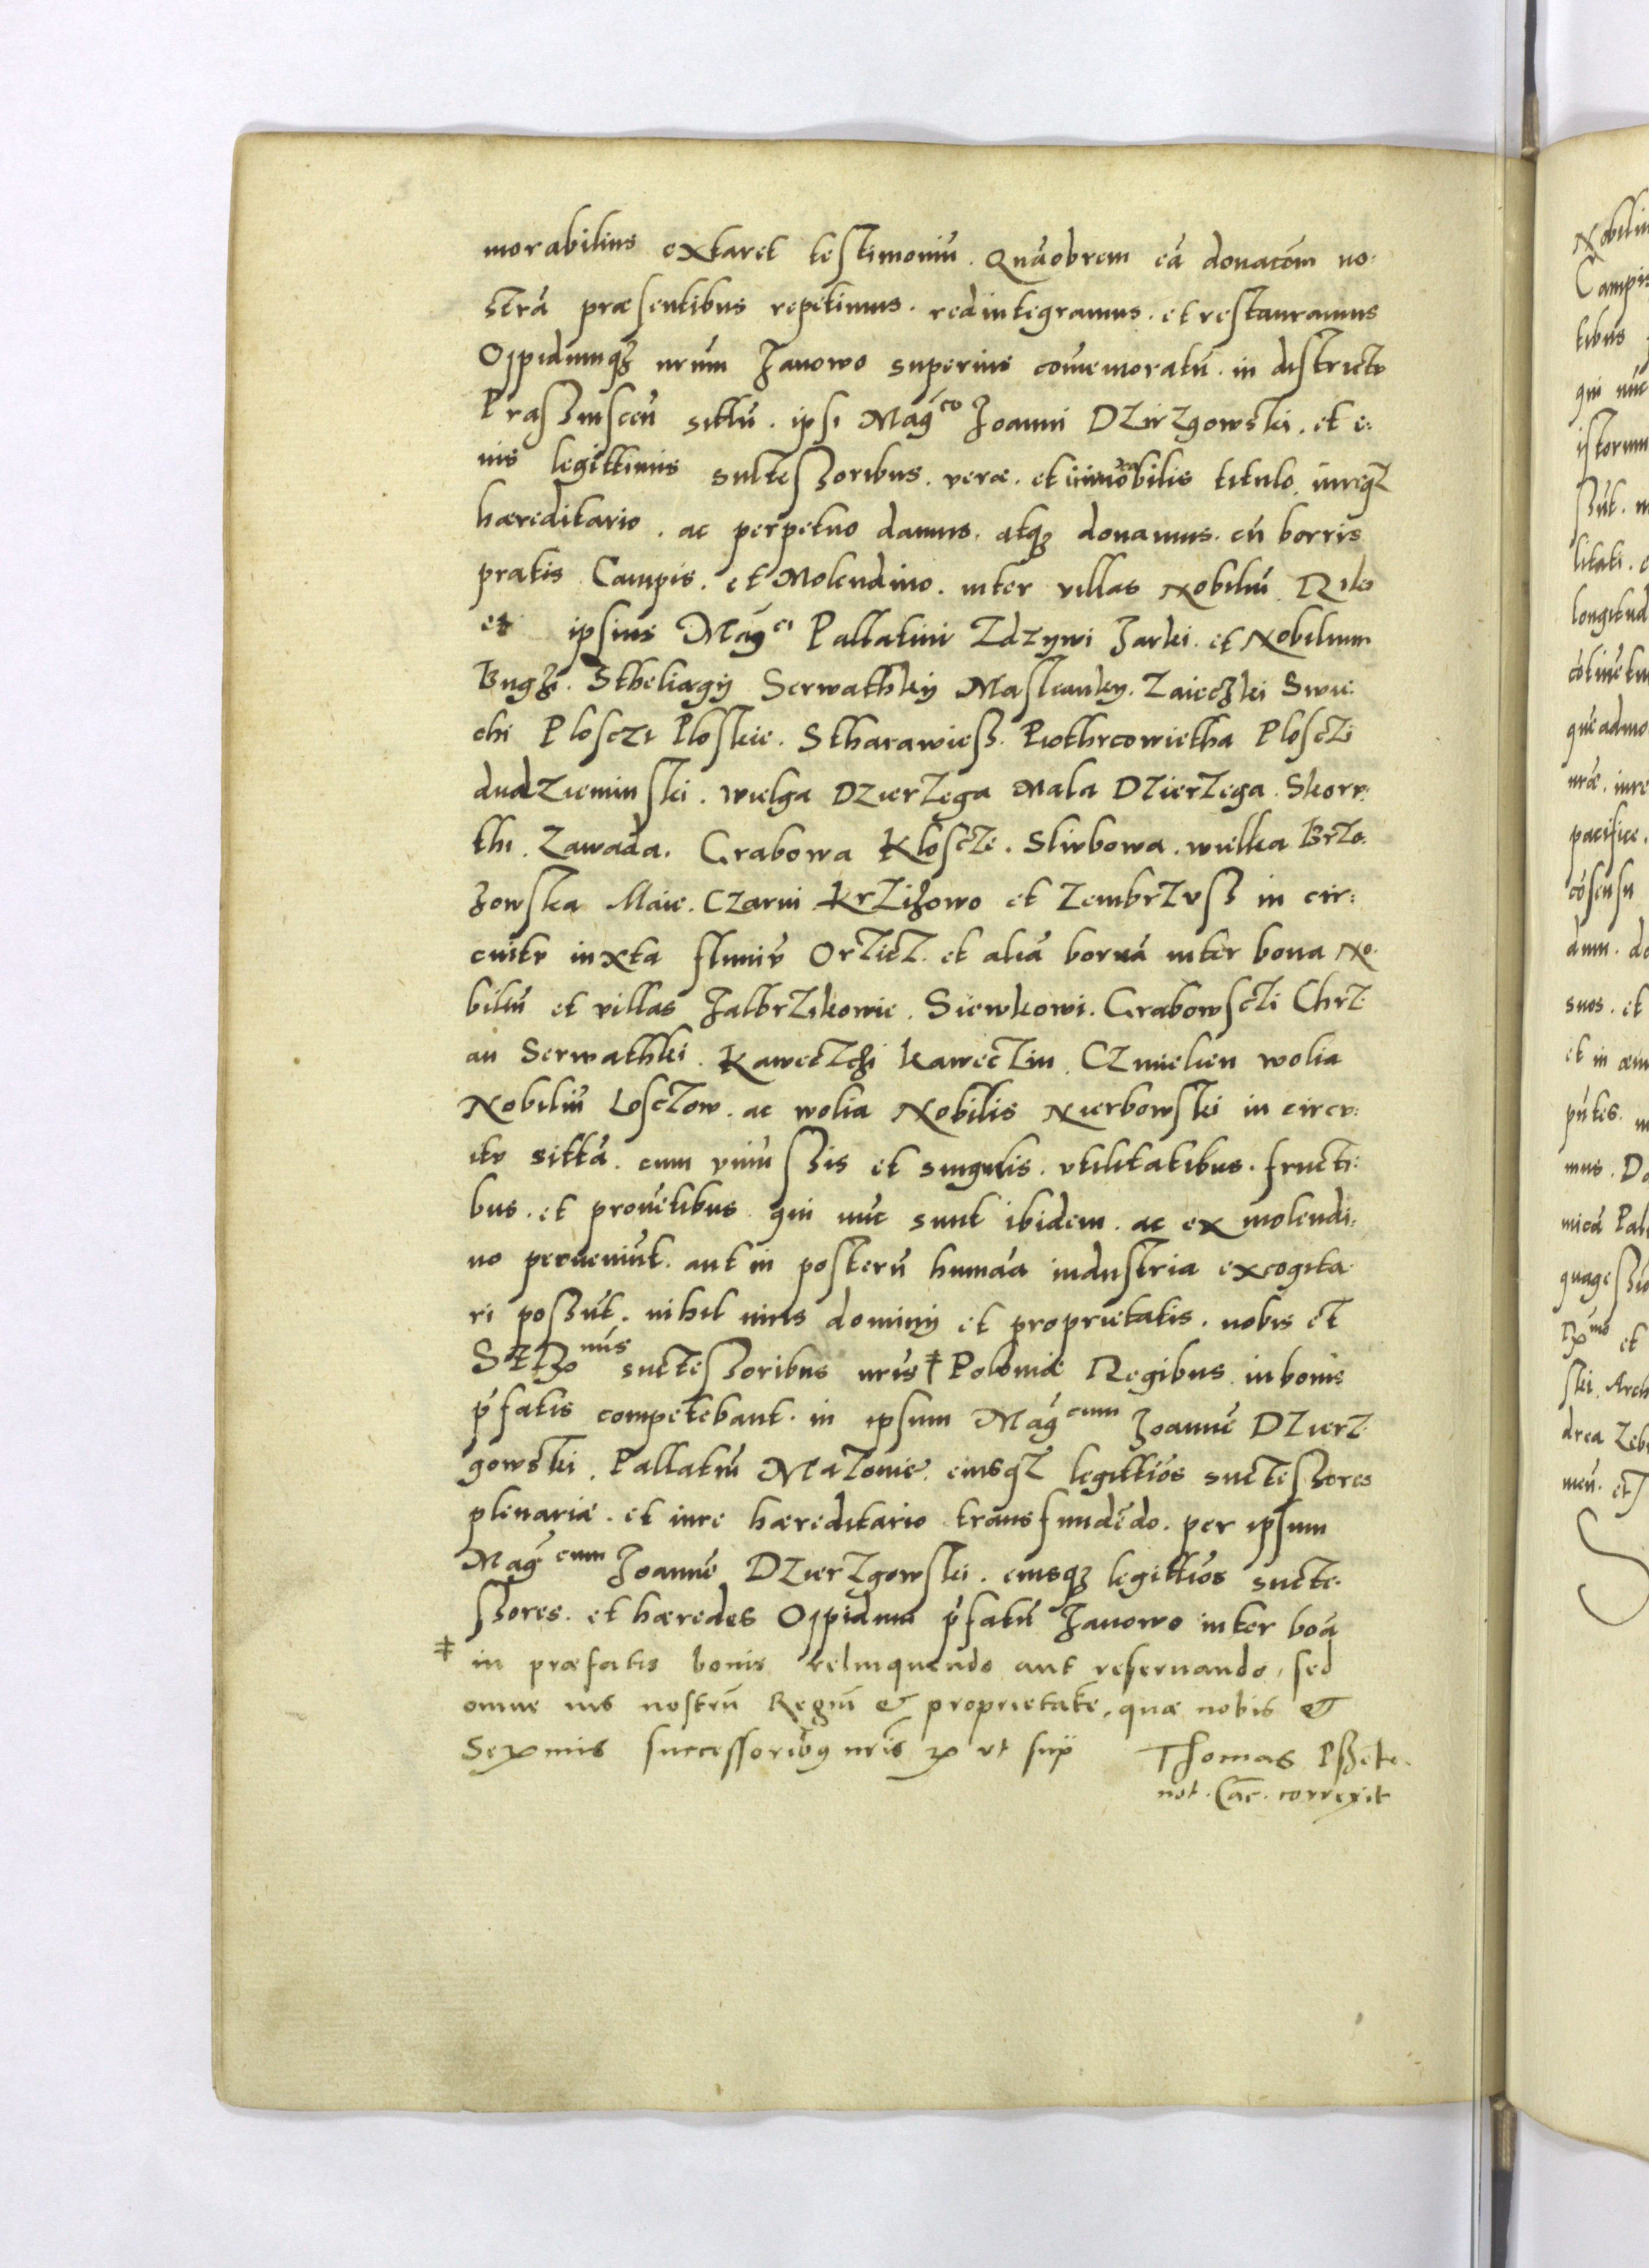 morabilius extaret testimoniū. Quāobrem eā donacōm no-
strā præsentibus repetimus. redintegramus. et restauramus
Oppidumq₃ nrūm Janowo superius cōmemoratū. in districtu
Prassnscen̄ sittū. ipsi Magco Joanni Dzirzgowski. et e-
ius legittimis suctessoribus. veræ. et irreuocabilis titulo. iureqz
hæreditario. ac perpetuo damus. atq₃ donamus. cū borris
pratis Campis. et Molendino. inter villas Nobiliū
et ipsius Magci Pallatini Zdzywi Jarki. et Nobilium
Stheliagÿ Serwathkÿ Maslcankÿ. Zaieczki Swie-
chi Ploscz1 Ploskie. Stharawiess. Piothrcowietha Ploscti
dudzieminski. wielga Dzierzega Mala Dzierzega. Skoru-
thi. Zawada. Grabowa Kloscze. Slubowa. wielka Brzo-
zowska Maie. Czarni Krzizowo et Zembrzuss in cir-
cuitu iuxta flumē Orzicz. et aliā borrā inter bona No-
biliū et villas Jalbrzikowie. Siewkowi. Grabowscti Chrz-
an Serwathki. Kawectzki kawectin. Czmielien wolia
Nobiliū Losczow. ac wolia Nobilis Nierbowski in circu-
itu sittā. cum vniuersis et singulis. vtilitatibus. fructi-
bus. et prouētibus qui nūc sunt ibidem. ac ex molendi-
no perueniūt. aut in posterū humāa industria excogita-
ri possūt. nihil iuris dominÿ et proprietatis. nobis et
Srmus suctessoribus nrīs ‡ Poloniæ Regibus in bonis
p̄fatis competebant. in ipsum Magcum Joannē Dzierz-
gowski. Pallatīn Mazouiē. eiusqz legittiōs suctessores
plenariæ. et iure hæreditario transfundēdo. per ipsum
Magcum Joannē Dzierzgowski. eiusq₃ legittiōs sucte-
ssores. et hæredes Oppidum p̄fatū Janowo inter boā
‡ in præfatis bonis relinquendo aut reseruando, sed
omne ius nostrū Regiū & proprietatē, quæ nobis &
Serᵐis successorib₉ nrīs ut sup̄
Thomas Pssete.
not. Cac. correxit